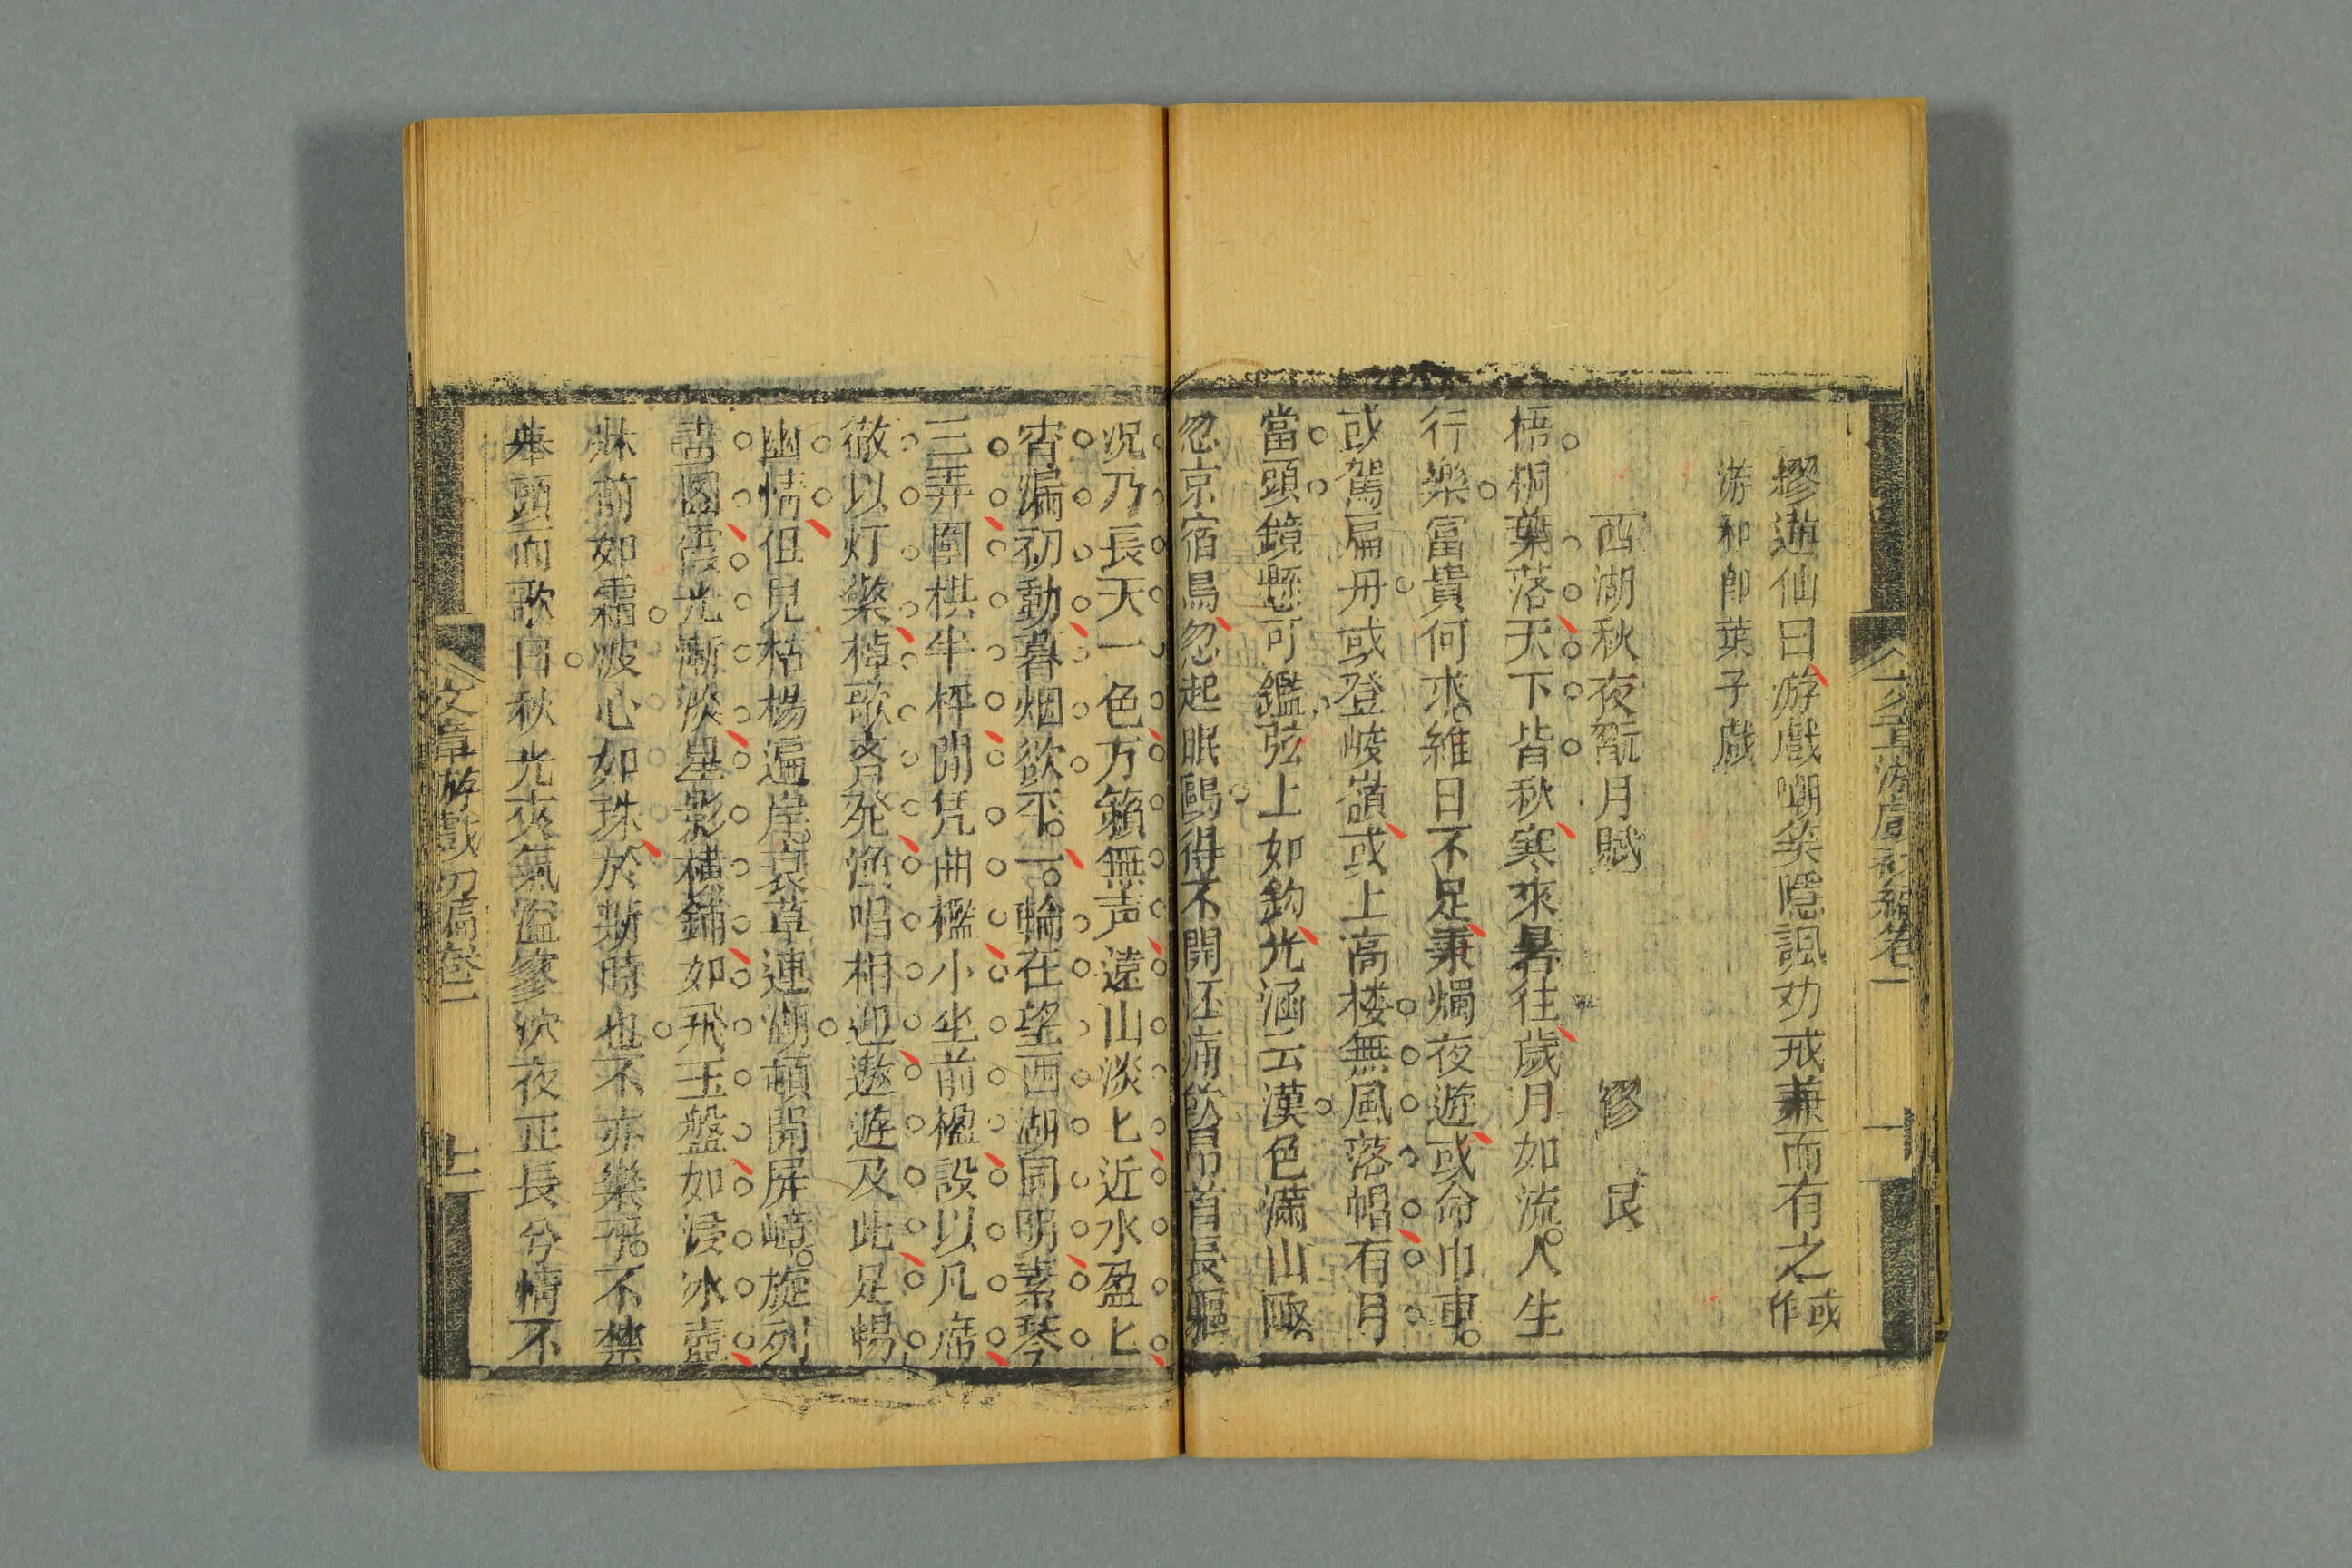 文章游戲初編卷一
繆蓮仙曰游戲嘲笑隱諷劝戒兼而有之或作
游和卽葉子戲
西湖秋夜翫月賦 繆艮
梧桐葉落天下皆秋寒來暑往歲月如流人生
行樂富貴何求維日不足秉燭夜遊或命巾車
或駕扁舟或登峻嶺或上高楼無風落帽有月
當頭鏡懸可鑑弦上如鈎光涵云漢色滿山陬
忽京宿鳥忽起眠鷗得不開怀痛飲昂首長驅
况乃長天一色万籟無声遠山淡匕近水盈匕
宵漏初動暮烟欲平一輪在望西湖同明素琴
三弄圍棋半枰開凭曲檻小坐前楹設以凡席
徹以灯檠棹歌齐発漁唱相迎遨遊及此足暢
幽情但見枯楊遍岸衰草連湖頓開屏嶂旋列
畫圖霞光漸淡星影橫鋪如飛玉盤如浸冰壺
牀前如霜波心如珠於斯時也不亦樂乎不禁
舉頭而歌曰秋光爽氣溢寥泬夜正長兮情不
文章游戲初编卷二
上